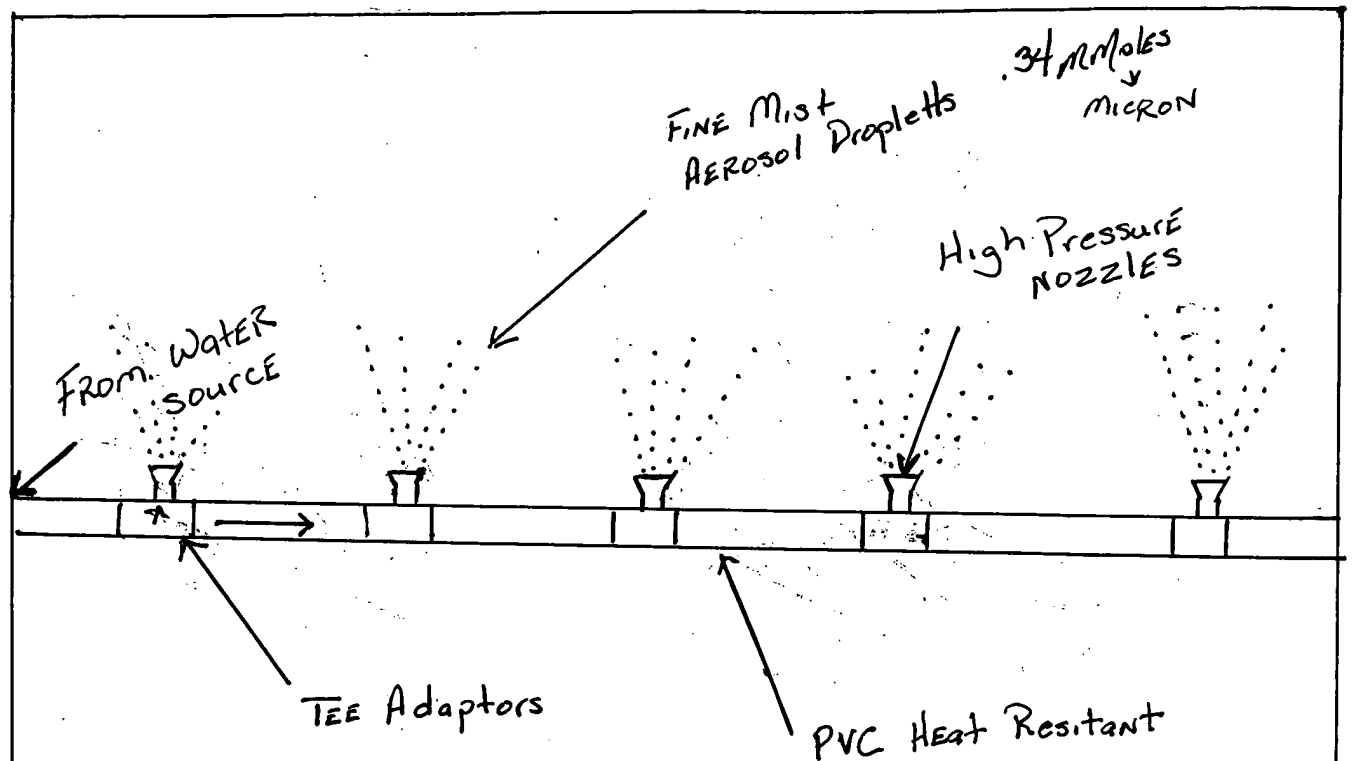 .34 mMoles
MICRON
FINE Mist
AEROSOL Dropletts
High Pressure
NOZZLES
FROM WatER
source
TEE Adaptors
PVC HEat Resitant